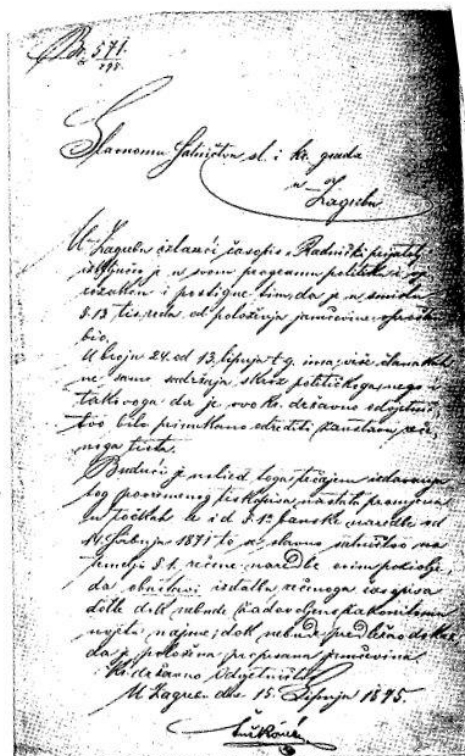 Br. 571.
Slavnomu Satničtvu sl. i kr. grada
u
Zagrebu
U Zagrebu izlazeći časopis "Radnički prijatelj"
je u svom programu politiku i
i postigne tim, da je u smislu
§. 13 tis. reda od položenja jamčevine
bio.
U broju 24. od 13. lipnja t. g. ima više članakah
ne samo sadržaja skroz političkoga nego i
takovoga da je ovo kr. državno
tvo bilo odrediti
noga lista.
Budući je uslied toga tečajem izdavanja
tog povremenog tiskopisa nastala promjena
u točkah i d §. 10 banske naredbe od
14. 1871 to se slavno satničtvo na
temelju §. 1. rečene naredbe ovim
da obustavi izdatbu rečenoga časopisa
dotle dok nebude zadovoljeno zakonitomu
uvjetu najme; dok nebude predležao dokaz
da je položena propisana jamčevina.
Kr. državno odvjetničtvo
U Zagrebu dne 15. Lipnja 1895.